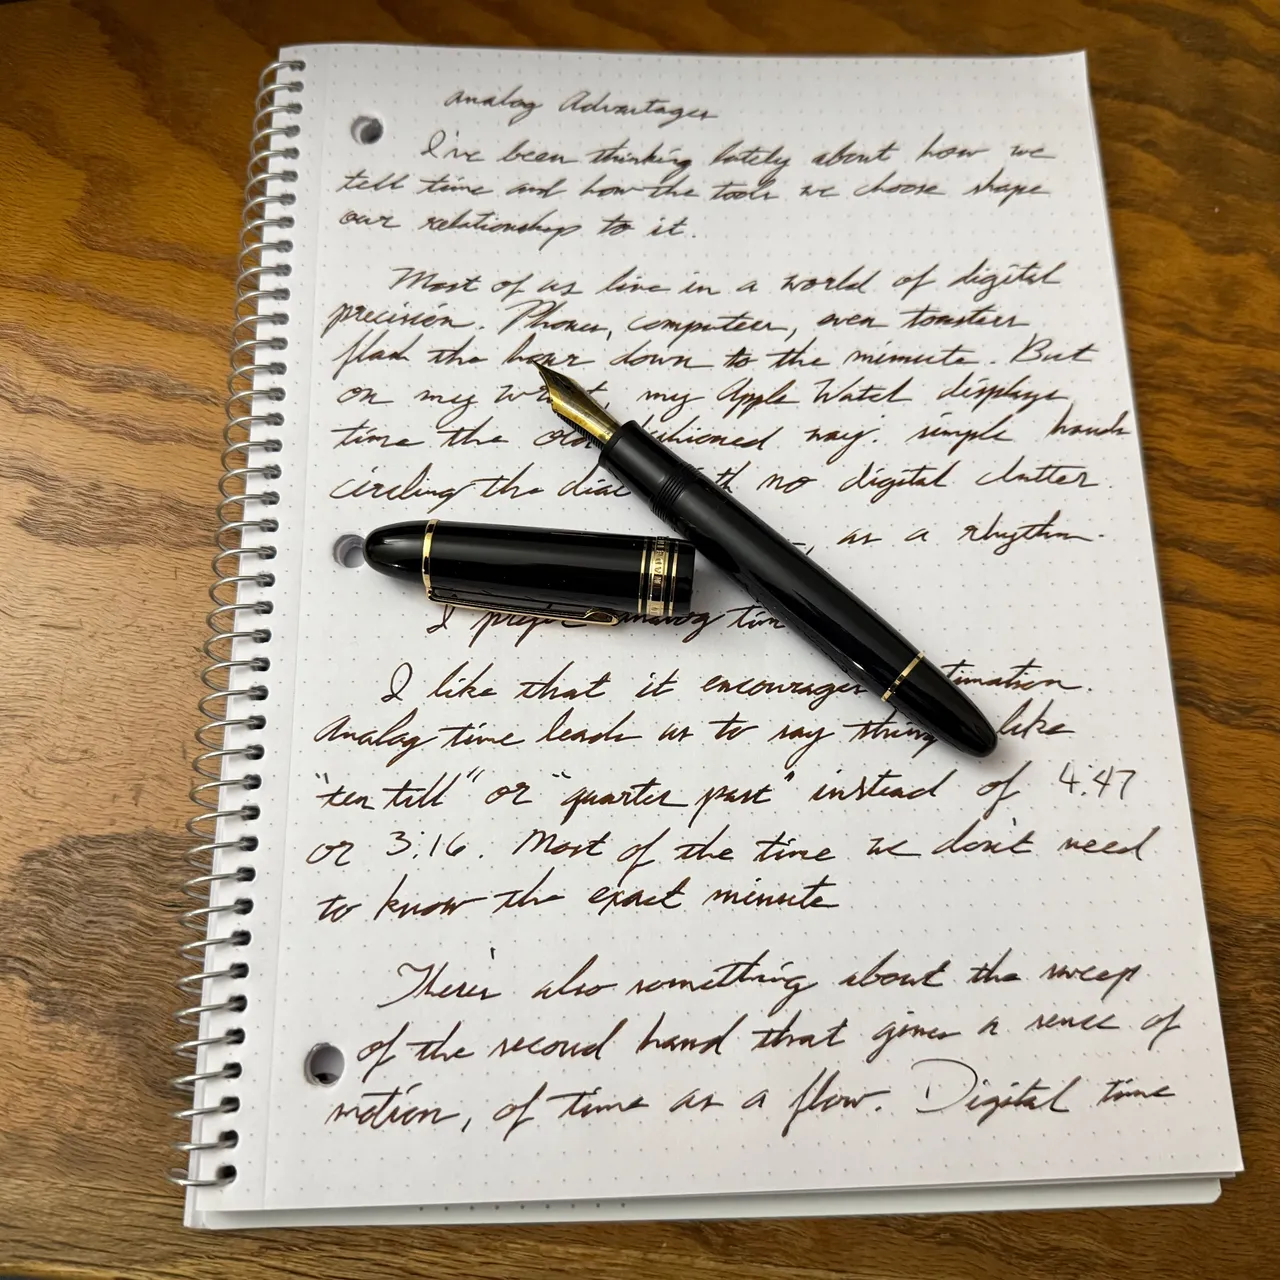 Analog Advantages
I've been thinking lately about how we
tell time and how the tools we choose shape
our relationship to it.
Most of us live in a world of digital
precision. Phones, computers, even toasters
flash the hour down to the minute. But
on my wrist, my Apple Watch displays
time the old fashioned way: simple hands
circling the dial with no digital clutter.
, as a rhythm.
I prefer analog time
I like that it encourages estimation.
Analog time leads us to say things like
"ten till" or "quarter past" instead of 4:47
or 3:16. Most of the time we don't need
to know the exact minute
There's also something about the sweep
of the second hand that gives a sense of
motion, of time as a flow. Digital time